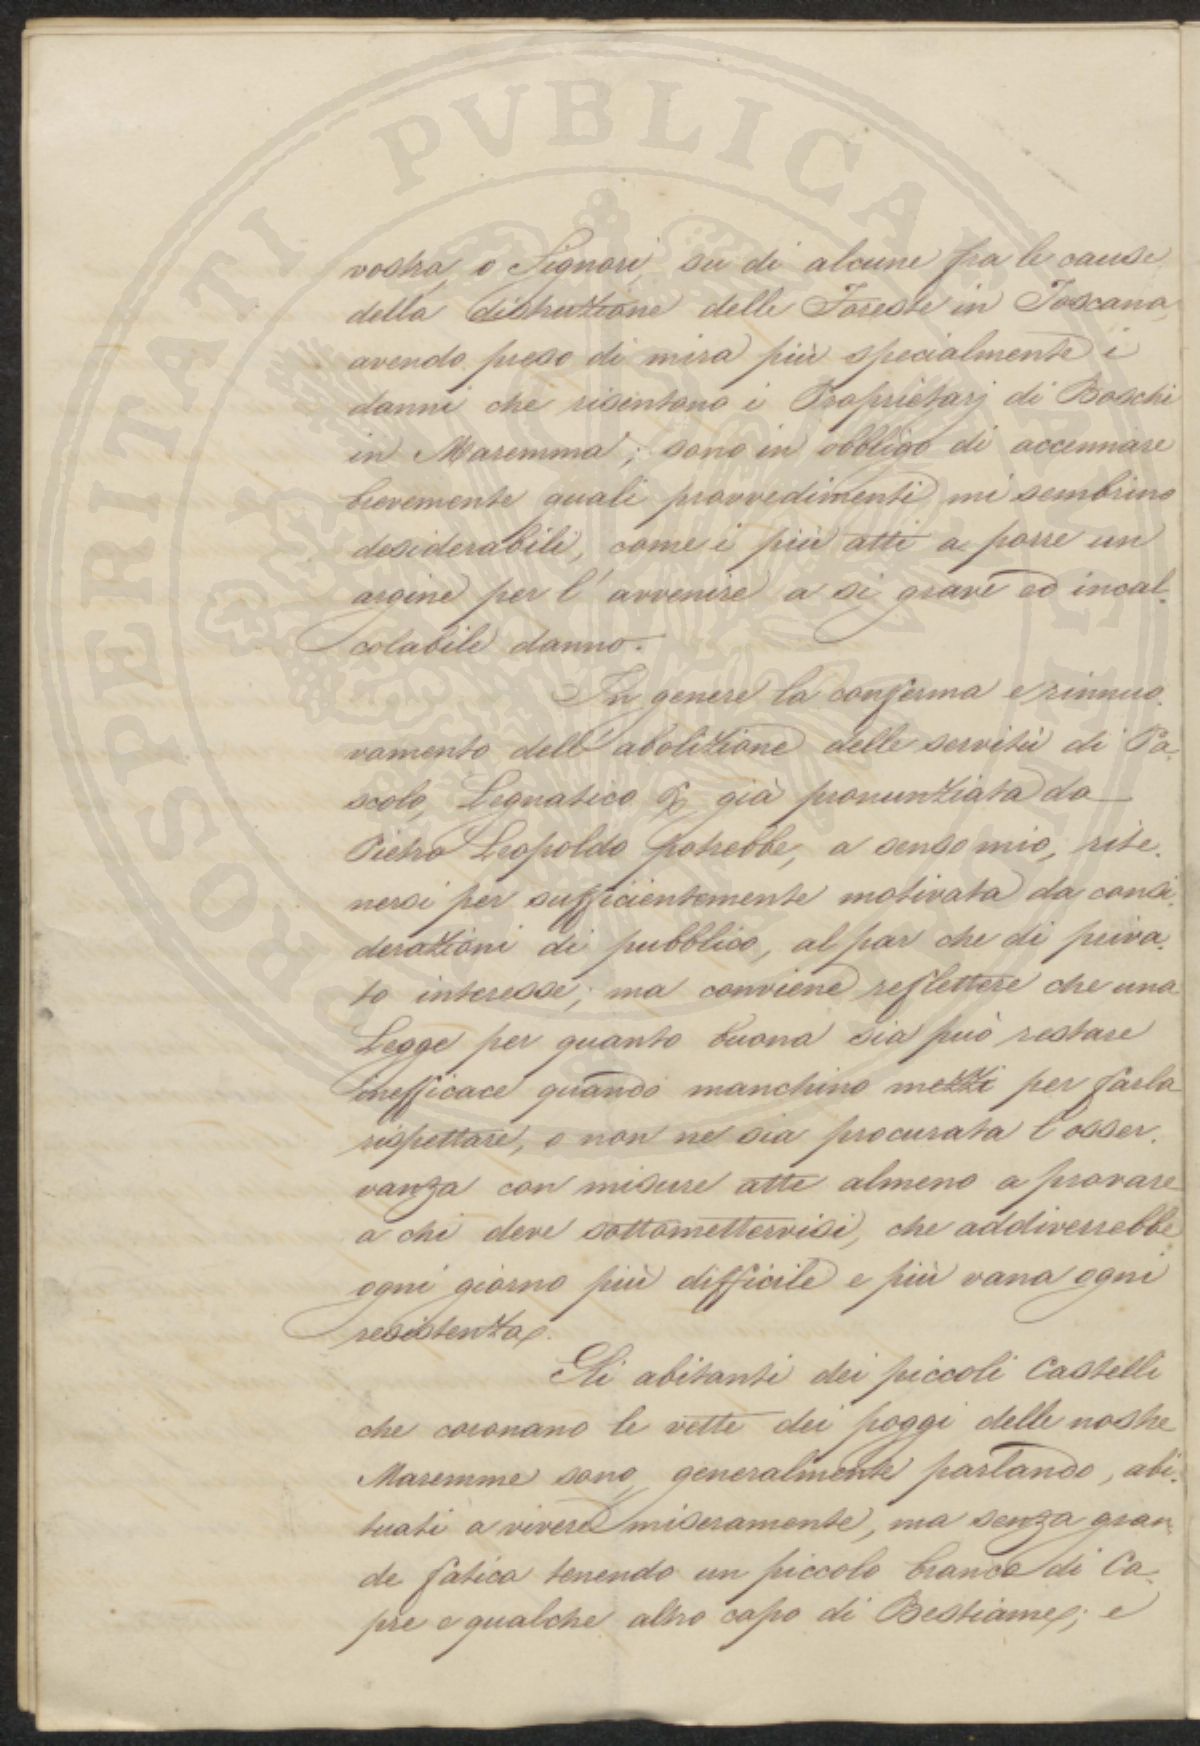 PROSPERITATI PVBLICAE AVGENDAE
vostra, o Signori, su di alcune fra le cause
della distruzione delle Foreste in Toscana,
avendo preso di mira più specialmente i
danni che risentono i Proprietarj di Boschi
in Maremma; sono in obbligo di accennare
brevemente quali provvedimenti mi sembrino
desiderabili, come i più atti a porre un
argine per l'avvenire a si grave ed incal-
colabile danno.
In genere la conferma e rinnuo-
vamento dell'abolizione delle servitù di Pa-
scolo, Legnatico & già pronunziata da
Pietro Leopoldo potrebbe, a senso mio, rite-
nersi per sufficientemente motivata da consi-
derazioni di pubblico, al par che di priva-
to interesse; ma conviene reflettere che una
Legge per quanto buona sia può restare
inefficace quando manchino mezzi per farla
rispettare, o non ne sia procurata l'osser-
vanza con misure atte almeno a provare
a chi deve sottomettervisi, che addiverrebbe
ogni giorno più difficile e più vana ogni
resistenza.
Gli abitanti dei piccoli Castelli
che coronano le vette dei poggi delle nostre
Maremme sono, generalmente parlando, abi-
tuati a vivere miseramente, ma senza gran-
de fatica tenendo un piccolo branco di Ca-
pre e qualche altro capo di Bestiame; e